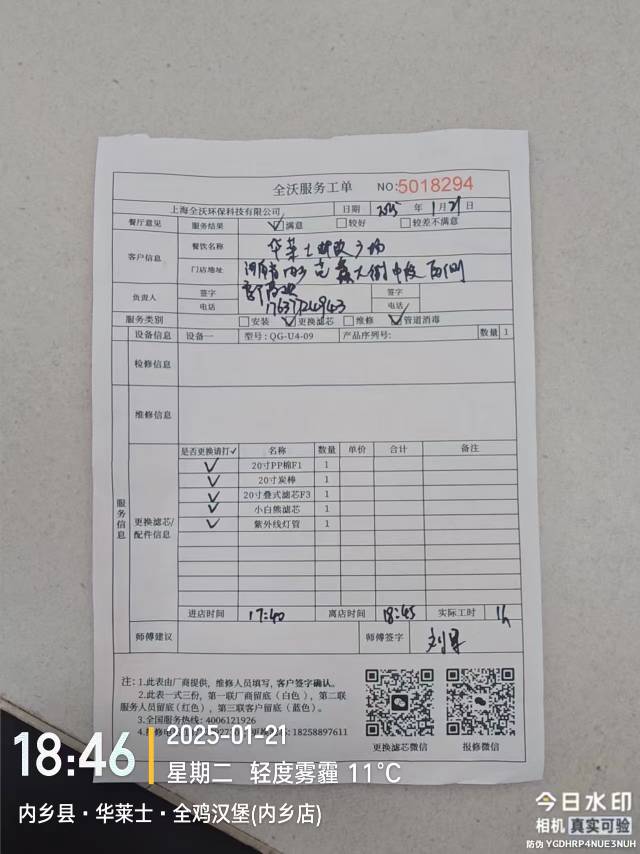 全沃服务工单 NO:5018294
上海全沃环保科技有限公司 日期 2025 年 1 月 21 日
餐厅意见 服务结果 ☑满意 □较好 □较差不满意
客户信息 餐饮名称 华莱士
门店地址 河南省
负责人 签字 签字
电话 电话
服务类别 □安装 ☑更换滤芯 □维修 ☑管道消毒
设备信息 设备一 型号:QG-U4-09 产品序列号: 数量 1
检修信息
维修信息
服务信息
更换滤芯/配件信息
是否更换请打✓ 名称 数量 单价 合计 备注
✓ 20寸PP棉F1 1
✓ 20寸炭棒 1
✓ 20寸叠式滤芯F3 1
✓ 小白熊滤芯 1
✓ 紫外线灯管 1
进店时间 17:40 离店时间 18:45 实际工时 1h
师傅建议 师傅签字
注:1.此表由厂商提供, 维修人员填写, 客户签字确认。
2.此表一式三份, 第一联厂商留底(白色), 第二联
服务人员留底(红色), 第三联客户留底(蓝色)。
3.全国服务热线: 4006121926
18258897611
更换滤芯微信 报修微信
18:46
2025-01-21
星期二 轻度雾霾 11℃
内乡县·华莱士·全鸡汉堡(内乡店)
今日水印
相机 真实可验
防伪 YGDHRP4NUE3NUH